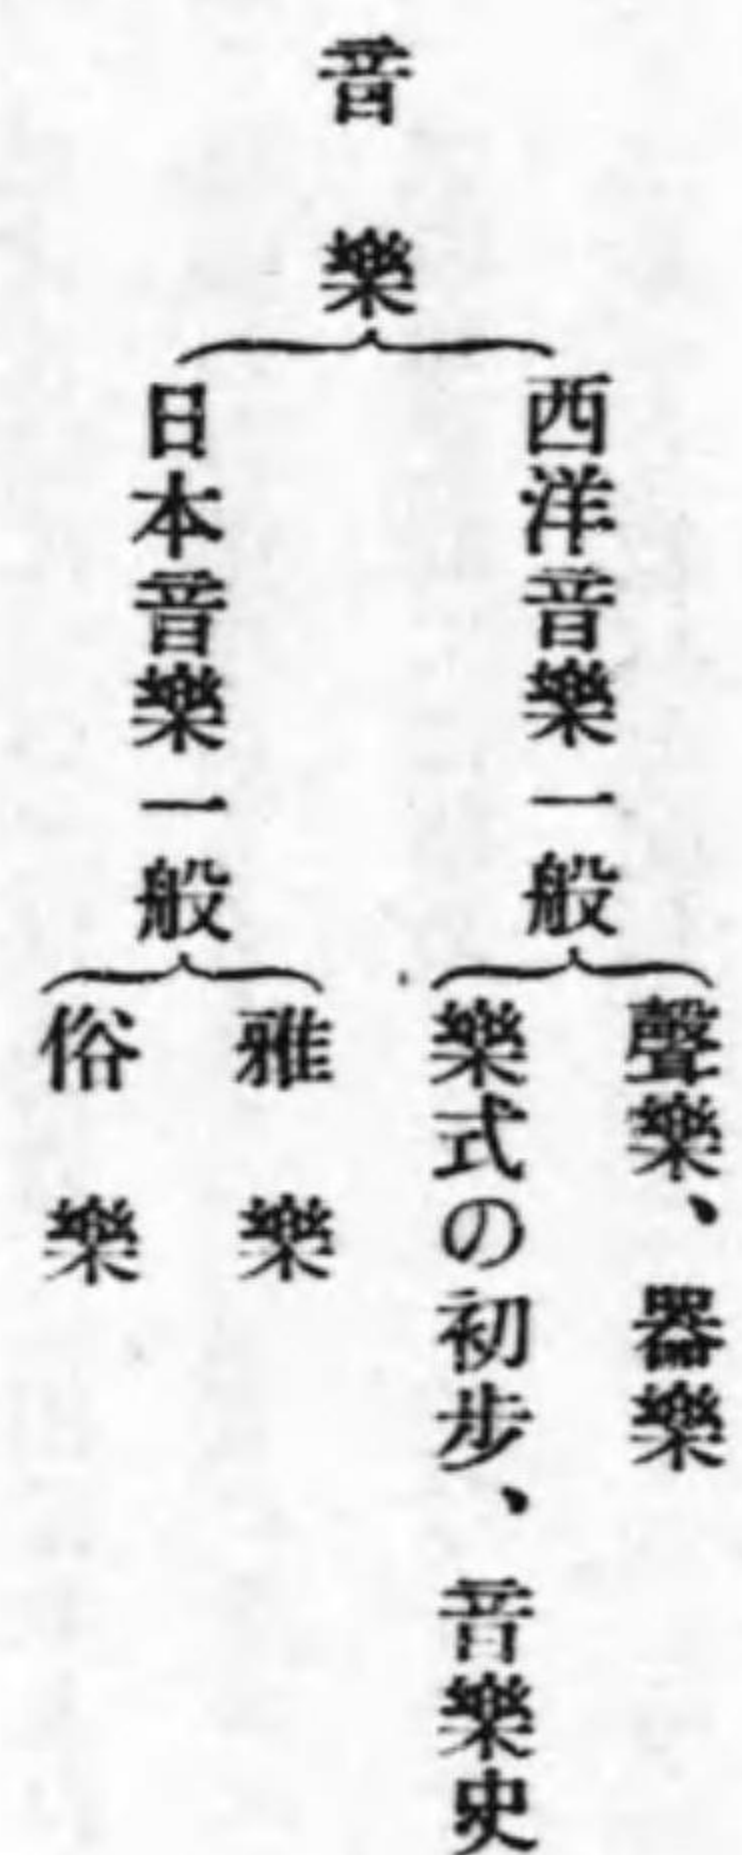 音樂
西洋音樂一般
聲樂、器樂
樂式の初步、音樂史
日本音樂一般
雅樂
俗樂